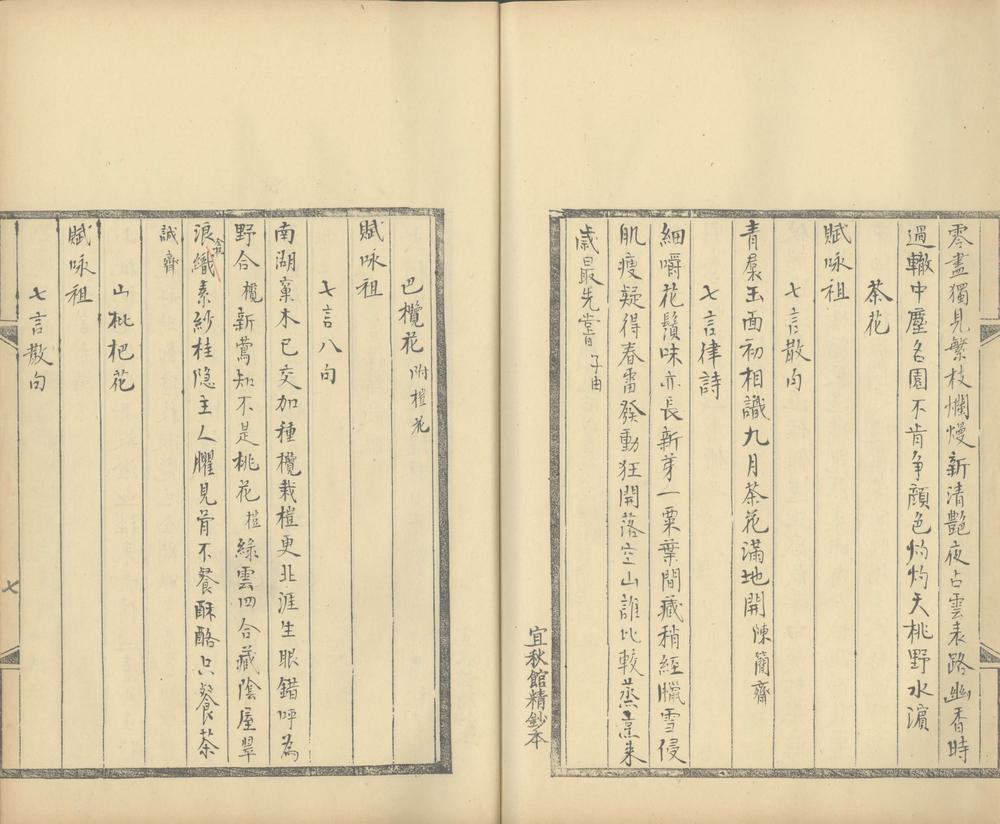 零盡獨見繁枝爛熳新清豔夜占雲表路幽香時
過轍中塵名園不肯爭顔色灼灼夭桃野水濵
茶花
賦咏祖
七言散句
青裠玉面初相識九月茶花滿地開陳簡齋
七言律詩
細嚼花鬚味亦長新芽一粟葉間藏稍經臘雪侵
肌瘦疑得春雷發動狂開落空山誰比較蒸烹来
歳最先嘗子由
宜秋館精鈔本
巴欖花附榿花
賦咏祖
七言八句
南湖窠木已交加種欖栽榿更北涯生眼錯呼為
野合欖新鶯知不是桃花榿綠雲四合藏陰屋翠
浪織素紗桂隐主人臞見骨不餐酥酪只餐茶
誠齋
山枇杷花
賦咏祖
七言散句
七